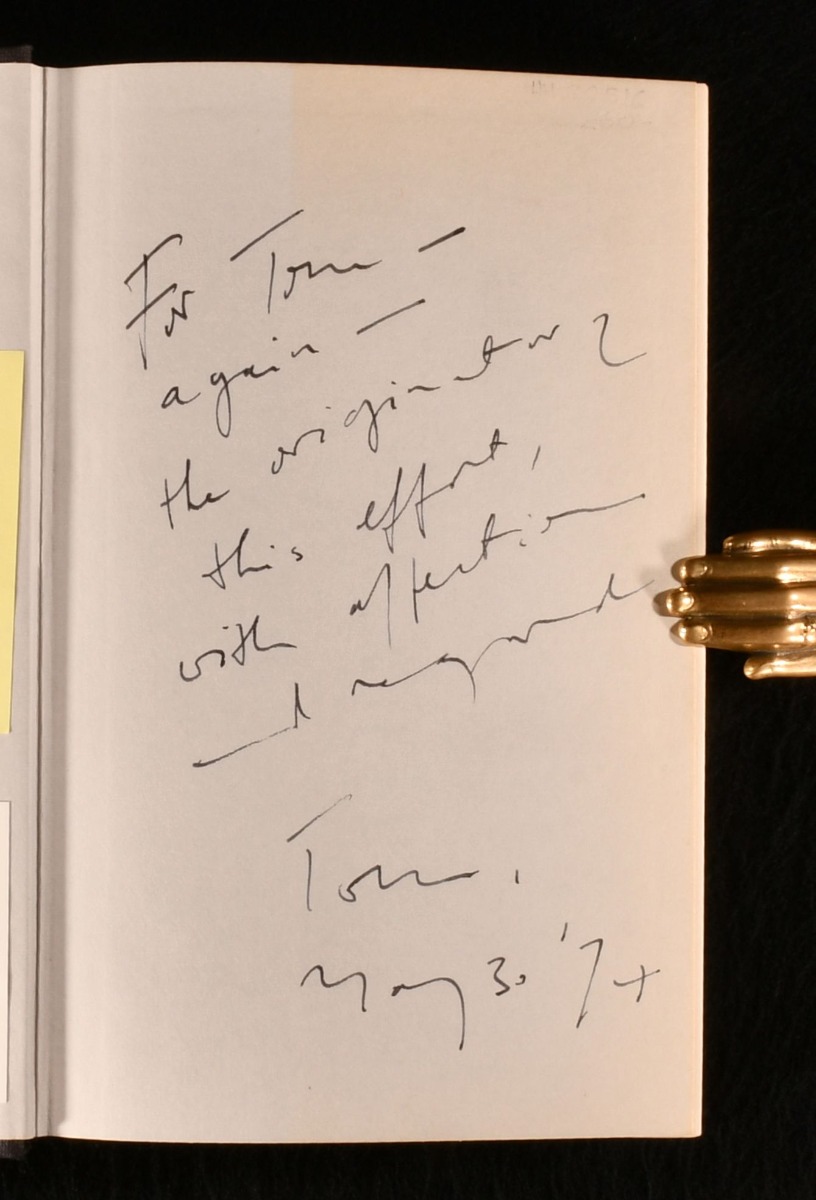 For Tom —
again —
the originator of
this effort,
with affection
and regard
Tom.
May 30 '74